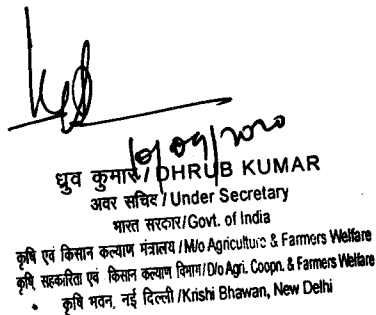 ध्रुव कुमार / DHRUB KUMAR
अवर सचिव / Under Secretary
भारत सरकार/Govt. of India
कृषि एवं किसान कल्याण मंत्रालय / M/o Agriculture & Farmers Welfare
कृषि, सहकारिता एवं किसान कल्याण विभाग/D/o Agri. Coopn. & Farmers Welfare
कृषि भवन, नई दिल्ली /Krishi Bhawan, New Delhi